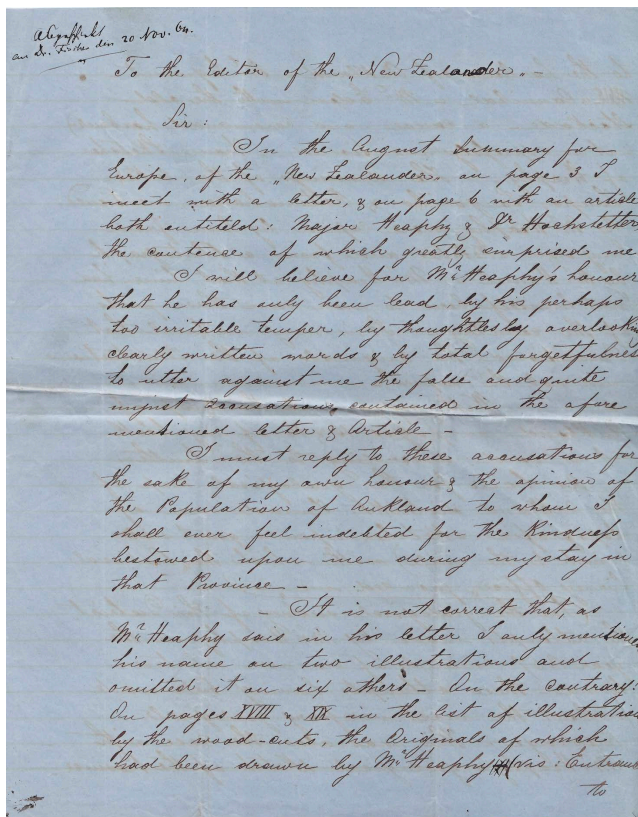 Abgeschickt
an Dr. Fischer den 20 Nov. 64.
To the Editor of the „New Zealander" -
Sir:
In the August Summary for
Europe, of the „New Zealander" on page 3 I
meet with a letter, & on page 6 with an article
both entiteld: Major Heaphy & Dr Hochstetter
the contence of which greatly surprised me
I will believe for Mr Heaphy's honour
that he has only been lead by his perhaps
too irritable temper, by thoughtlesly overlooking
clearly written words & by total forgetfulness
to utter against me the false and quite
unjust accusations contained in the afore
mentioned letter & Article -
I must reply to these accusations for
the sake of my own honour & the opinion of
the Population of Aukland to whom I
shall ever feel indebted for the Kindness
bestowed upon me during my stay in
that Province -
- It is not correct that, as
Mr Heaphy sais in his letter I only mentioned
his name on two illustrations and
omitted it on six others - On the contrary:
On pages XVIII & XIX in the list of illustration
by the wood-cuts, the Originals of which
had been drawn by Mr Heaphy (vis: Entrance
to